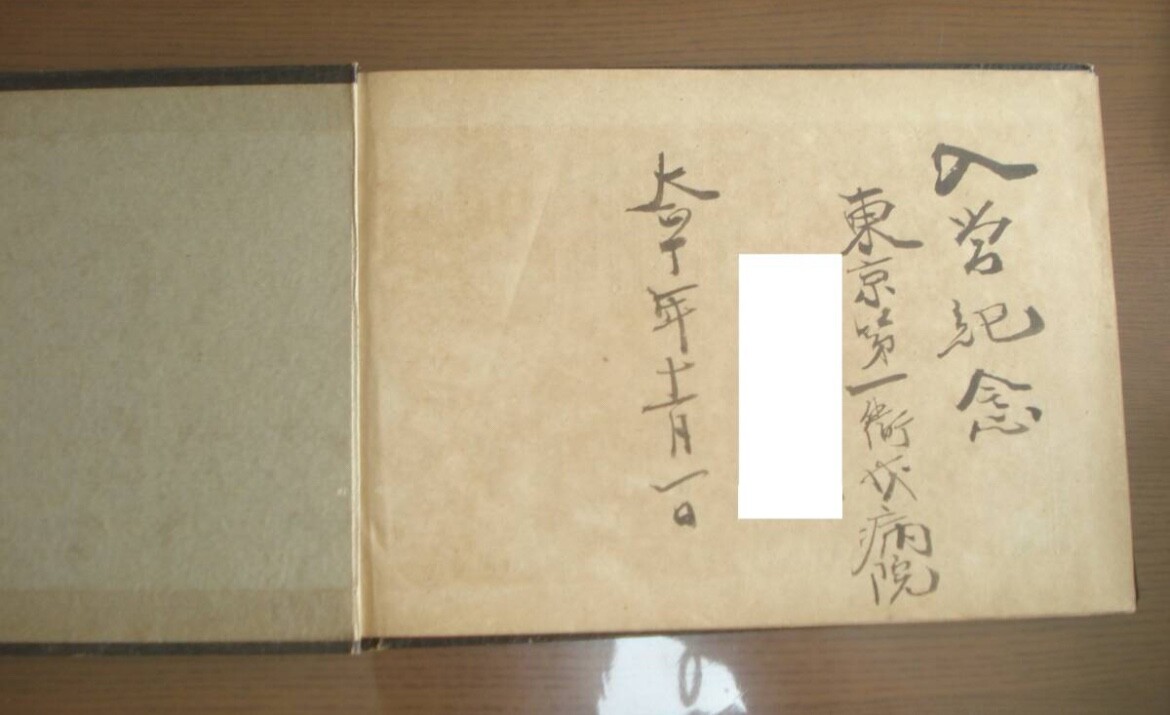 入営紀念
東京第一衛戍病院
大正十年十二月一日